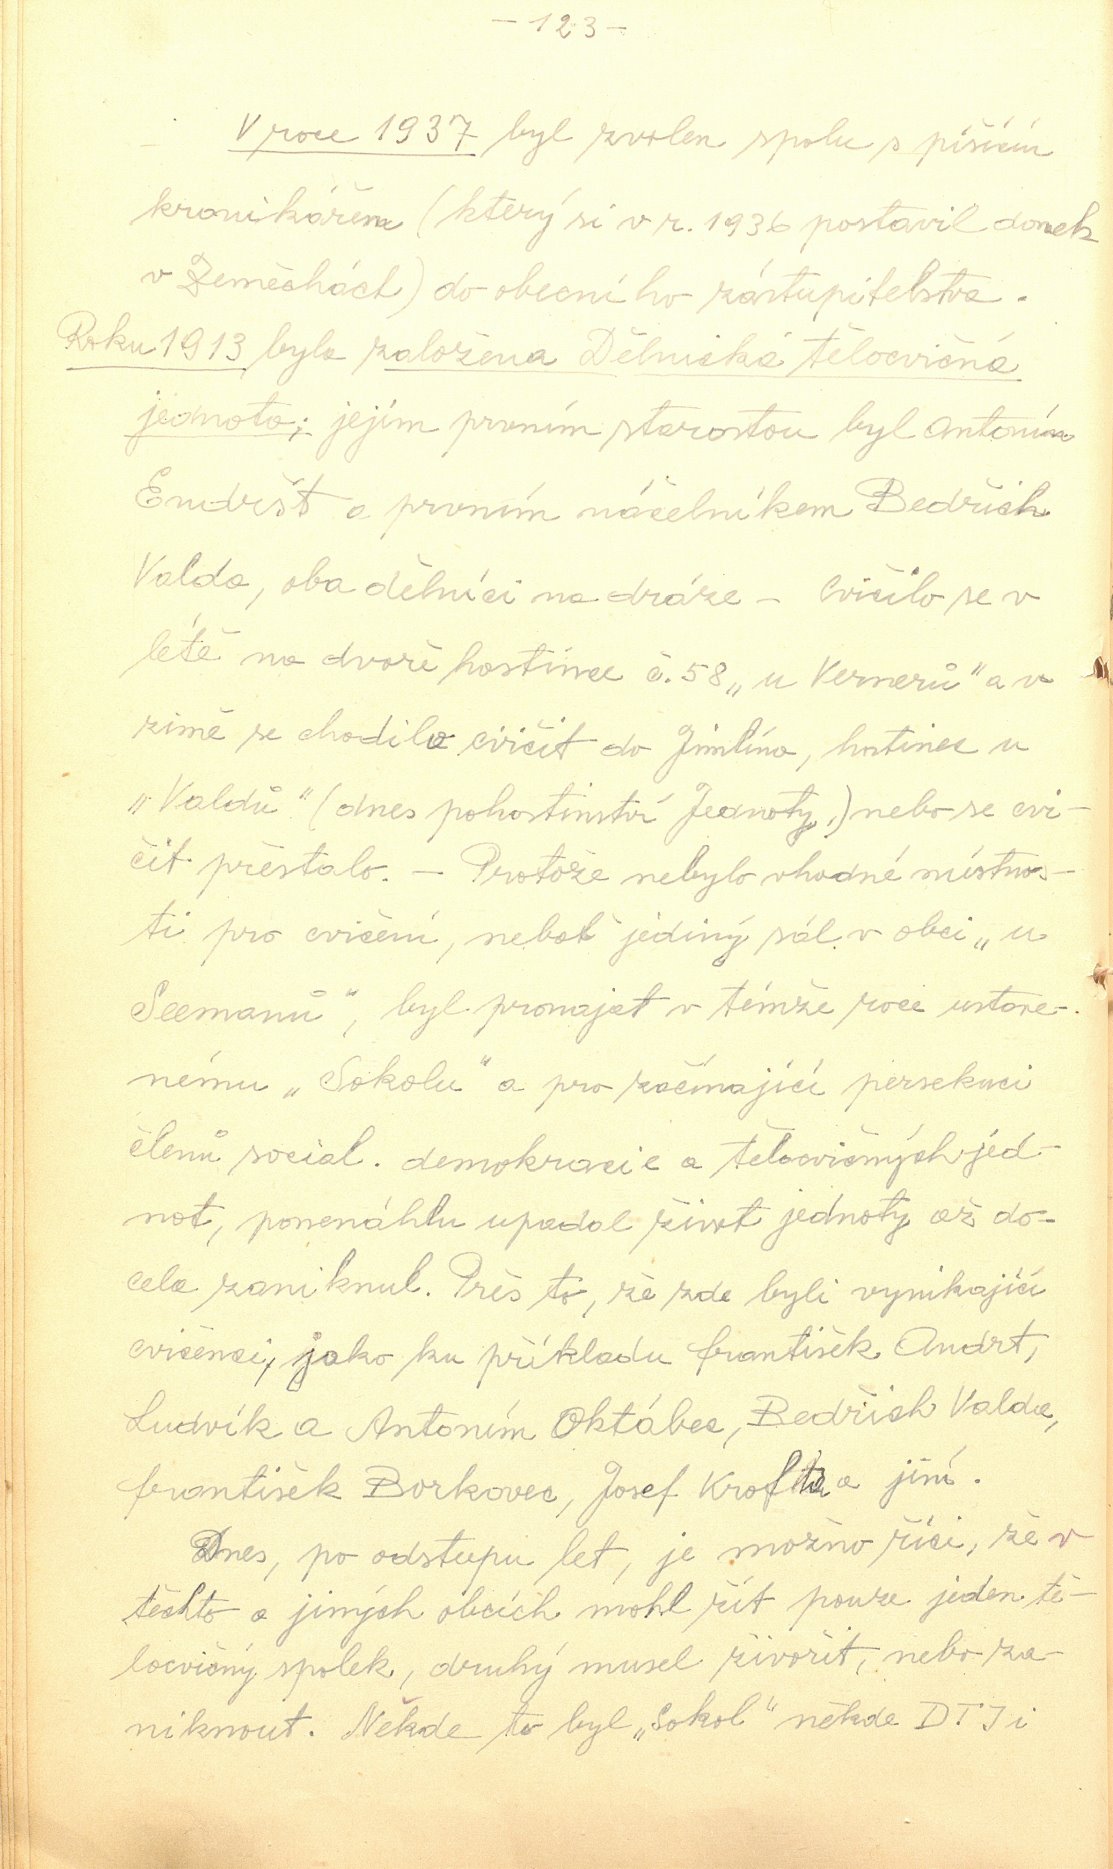 - 123 -
V roce 1937 byl zvolen spolu s píšícím
kronikářem (který si v r. 1936 postavil domek
v Zeměchách) do obecního zástupitelstva.
Roku 1913 byla založena Dělnická tělocvičná
jednota; jejím prvním starostou byl Antonín
Endršt a prvním náčelníkem Bedřich
Valda, oba dělníci na dráze - Cvičilo se v
létě na dvoře hostince č. 58 „u Vernerů" a v
zimě se chodilo cvičit do Jimlína, hostinec u
„Valdů" (dnes pohostinství Jednoty,) nebo se cvi-
čit přestalo. - Protože nebylo vhodné místnos-
ti pro cvičení, neboť jediný sál v obci „u
Seemanů", byl pronajat v témže roce ustave-
nému „Sokolu" a pro začínající persekuci
členů sociál. demokracie a tělocvičných jed-
not, ponenáhlu upadal život jednoty až do-
cela zaniknul. Přes to, že zde byli vynikající
cvičenci, jako ku příkladu František Andrt,
Ludvík a Antonín Oktábec, Bedřich Valda,
František Borkovec, Josef Krofta a jiní.
Dnes, po odstupu let, je možno říci, že v
těchto a jiných obcích mohl žít pouze jeden tě-
locvičný spolek, druhý musel živořit, nebo za-
niknout. Někde to byl „Sokol" někde DTJ i